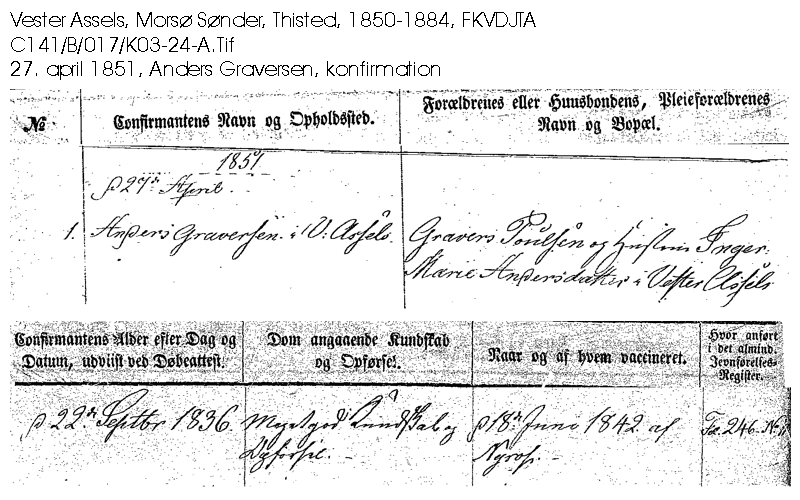 Vester Assels, Morsø Sønder, Thisted, 1850-1884, FKVDJTA
C141/B/017/K03-24-A.Tif
27. april 1851, Anders Graversen, konfirmation
№
Confirmantens Navn og Opholdssted.
Forældrenes eller Huusbondens, Pleieforældrenes
Navn og Bopæl.
1851
p 27de April.
1. Anders Graversen i V: Assels.
Gravers Poulsen og Hustru Inger
Marie Andersdatter i Vester Assels
Confirmantens Alder efter Dag og
Datum, udviist ved Døbeattest.
Dom angaaende Kundskab
og Opførsel.
Naar og af hvem vaccineret.
Hvor anført
i det almind.
Jevnførelses-
Register.
p 22de Septbr 1836.
Megetgod Kundskab og
Opførsel.
p 18de Juni 1842 af
Nyrop.
Fol. 246 No